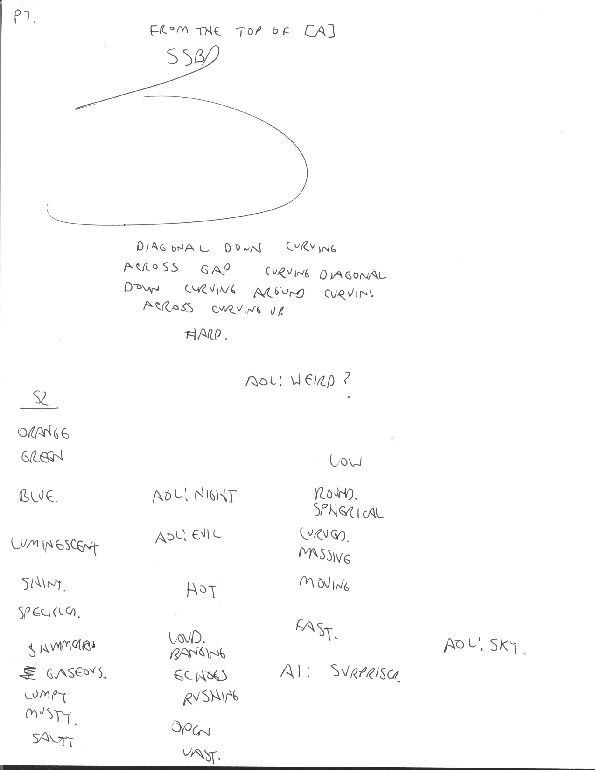 P7.
FROM THE TOP OF [A]
SSB
DIAGONAL DOWN CURVING
ACROSS GAP CURVING DIAGONAL
DOWN CURVING AROUND CURVING
ACROSS CURVING UP
HARD.
AOL: WEIRD?
S2
ORANGE
GREEN
LOW
BLUE. AOL: NIGHT ROUND.
SPHERICAL
LUMINESCENT AOL: EVIL CURVED.
MASSIVE
SHINY. HOT MOVING
FAST.
LOUD. AOL: SKY.
BANGING
GASEOUS. ECHOES AI: SURPRISED.
LUMPY RUSHING
MUSTY.
SALTY OPEN
VAST.